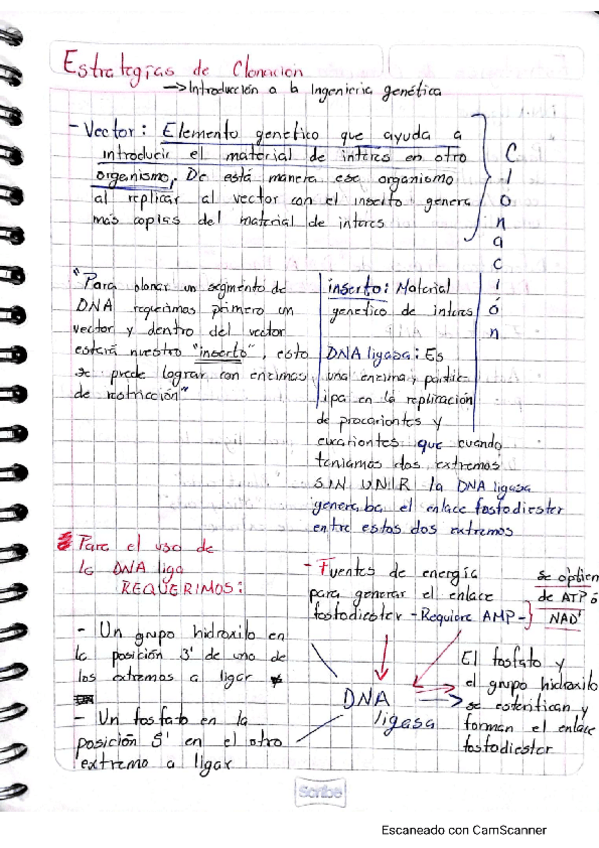 Estrategías de Clonación
->Introducción a la Ingenieria genética
- Vector: Elemento genetico que ayuda a
introducir el material de interes en otro
organismo, De está manera ese organismo
al replicar al vector con el inserto genera
más copias del material de interes
Clonación
"Para clonar un segmento de
DNA requerimos primero un
vector y dentro del vector
estará nuestro "inserto", esto
se puede lograr con enzimas
de restricción"
inserto: Material
genetico de interes
DNA ligasa: Es
una enzima y partic-
ipa en la replicación
de procariontes y
eucariontes que cuando
teniamos dos extremos
SIN UNIR la DNA ligasa
generaba el enlace fosfodiester
entre estos dos extremos
Para el uso de
la DNA liga
REQUERIMOS:
- Un grupo hidroxilo en
la posición 3' de uno de
los extremos a ligar
- Un fosfato en la
posición 5' en el otro
extremo a ligar
- Fuentes de energía
para generar el enlace
fosfodiester - Requiere AMP -
se obtien
de ATP ó
NAD+
DNA
ligasa
El fosfato y
el grupo hidroxilo
se esterifican y
forman el enlace
fosfodiester
Scribe
Escaneado con CamScanner